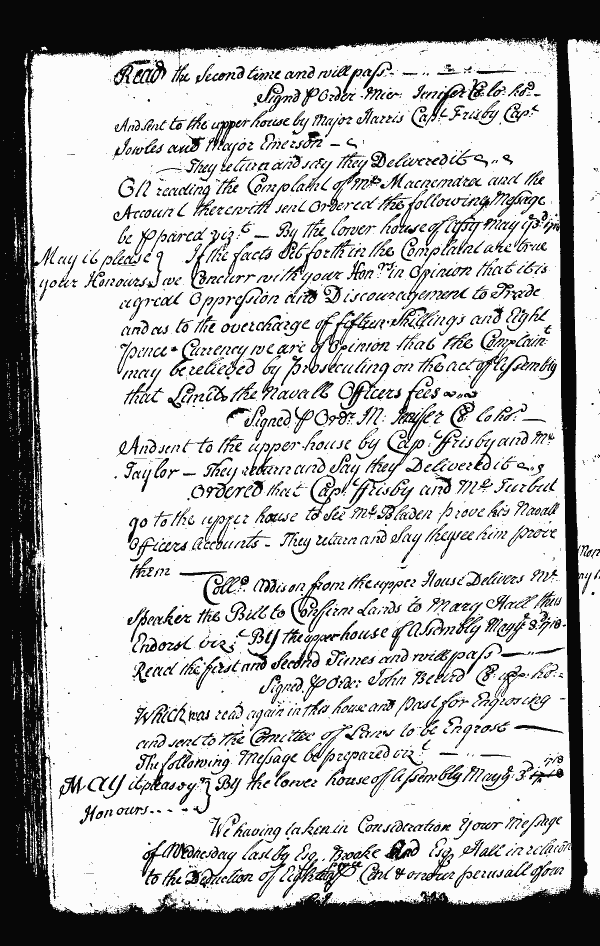 Read the Second time and will pass.
Signd P Order Mic: Jenifer Cl: lo: ho:
And sent to the upper house by Major Harris Cap.t Frisby Cap.t
Jowles and Major Emerson
They return and say they Delivered it
On reading the Complaint of Mr. Macnemara and the
Account therewith sent Ordered the following Message
be Ppared viz.t By the lower house of May
May it please } If the facts Set forth in the Complaint are true
your Honours } we Concurr with your Hon.rs in Opinion that it is
a great Oppression and Discouragement to Trade
and as to the overcharge of fifteen Shillings and Eight
pence Currency we are of Opinion that the Complain.t
may be relieved by Prosecuting on the act of Assembly
that Limits the Navall Officers fees
Signed P Ord.r M: Jenifer Cl: lo: ho:
And sent to the upper house by Cap. Frisby and Mr.
Taylor They return and Say they Delivered it
Ordered that Cap.t Frisby and Mr. Turbut
go to the upper house to See Mr. Bladen prove his Navall
Officers Accounts They return and Say they see him prove
them
Coll.o Addison from the upper House Delivers Mr.
Speaker the Bill to Confirm Lands to Mary Hall thus
Endorst viz.t By the upper house of Assembly May 3.d 1718
Read the first and Second Times and will pass
Signed P Order John Beard Cl: upp: ho:
Which was read again in this house and Past for Engrosing
and sent to the Comittee of Laws to be Engrost
The following Message be prepared viz.t
May it please yo.r } By the lower house of Assembly May y.e 3.d 1718
Honours }
We having taken in Consideration your Message
of Wednesday last by Esq. Brooke And Esq. Hall in relation
to the Deduction of Eight P Cent & on our perusall of our